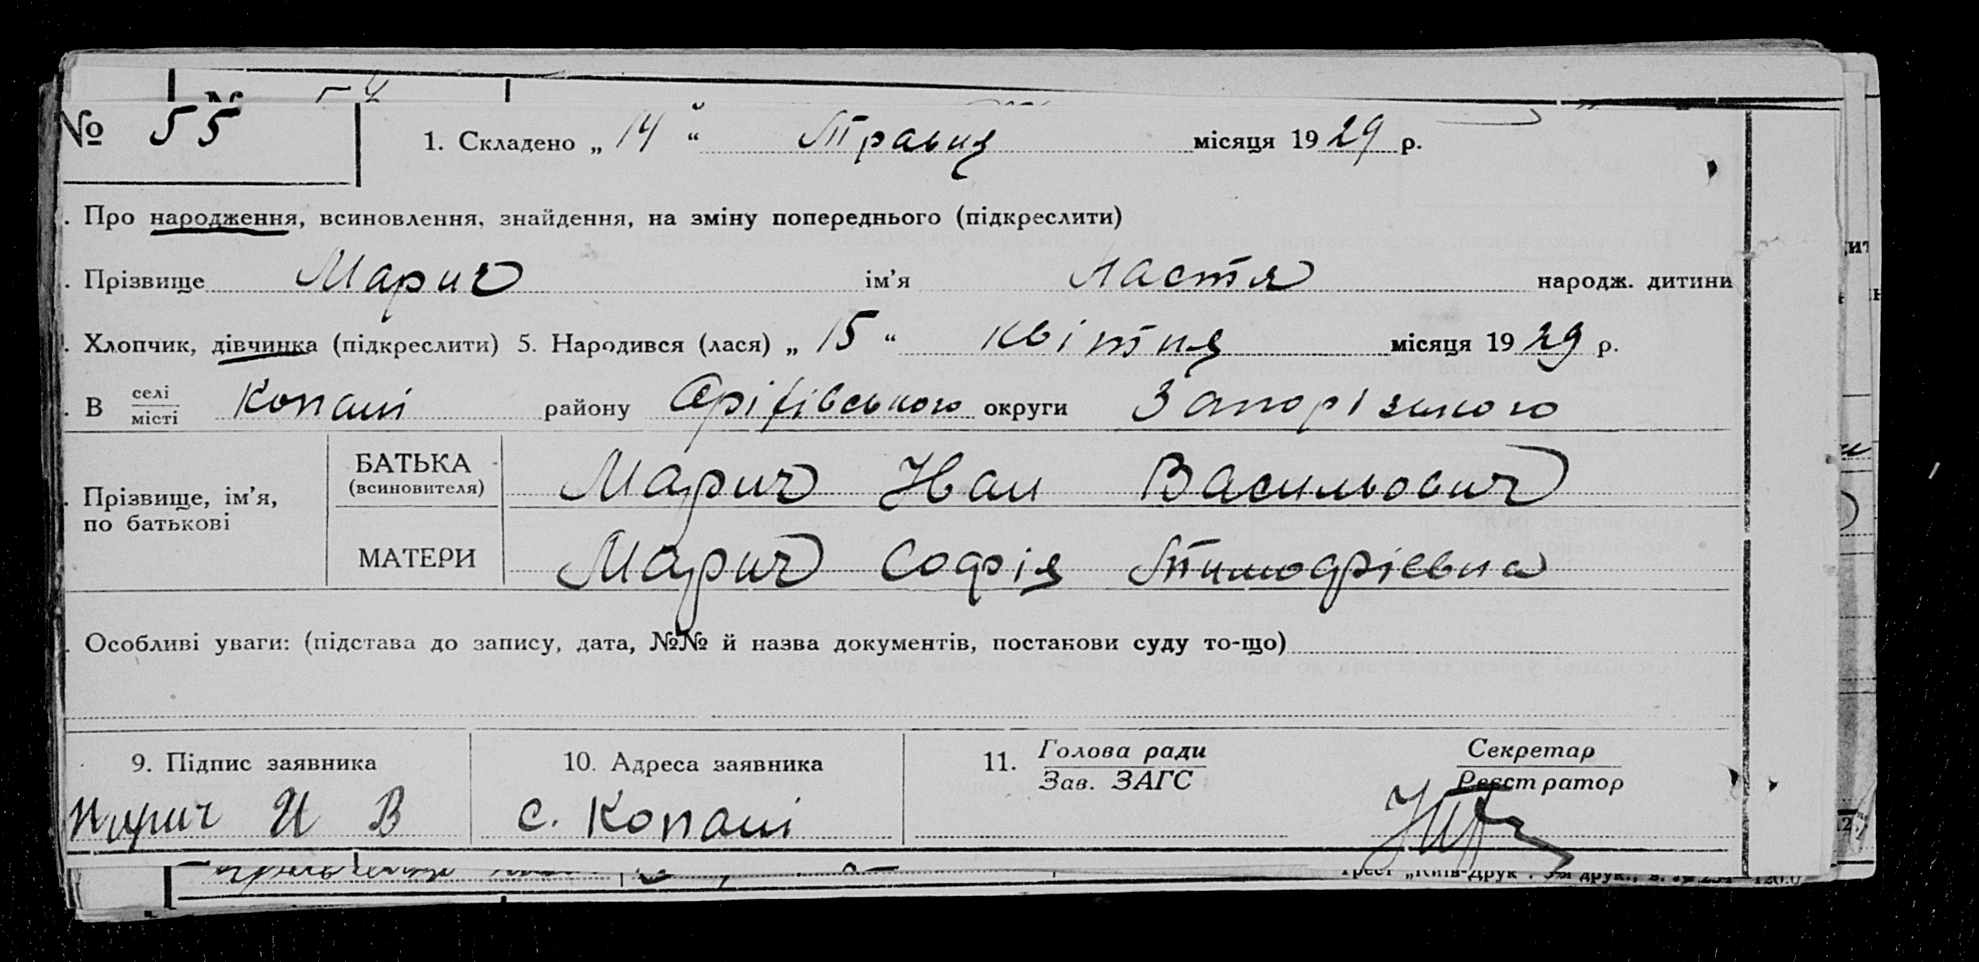 № 55
1. Складено „ 14 “ Травня місяця 1929 р.
. Про народження, всиновлення, знайдення, на зміну попереднього (підкреслити)
. Прізвище Марич ім’я Настя народж. дитини
. Хлопчик, дівчинка (підкреслити) 5. Народився (лася) „ 15 “ квітня місяця 1929 р.
. В селі
місті Копані району Оріхівського округи Запорізького
. Прізвище, ім’я,
по батькові
БАТЬКА
(всиновителя) Марич Иван Васильович
МАТЕРИ Марич Софія Тимофієвна
. Особливі уваги: (підстава до запису, дата, №№ й назва документів, постанови суду то-що)
9. Підпис заявника 10. Адреса заявника 11. Голова ради
Зав. ЗАГС
Секретар
Реєстратор
Марич И В с. Копані